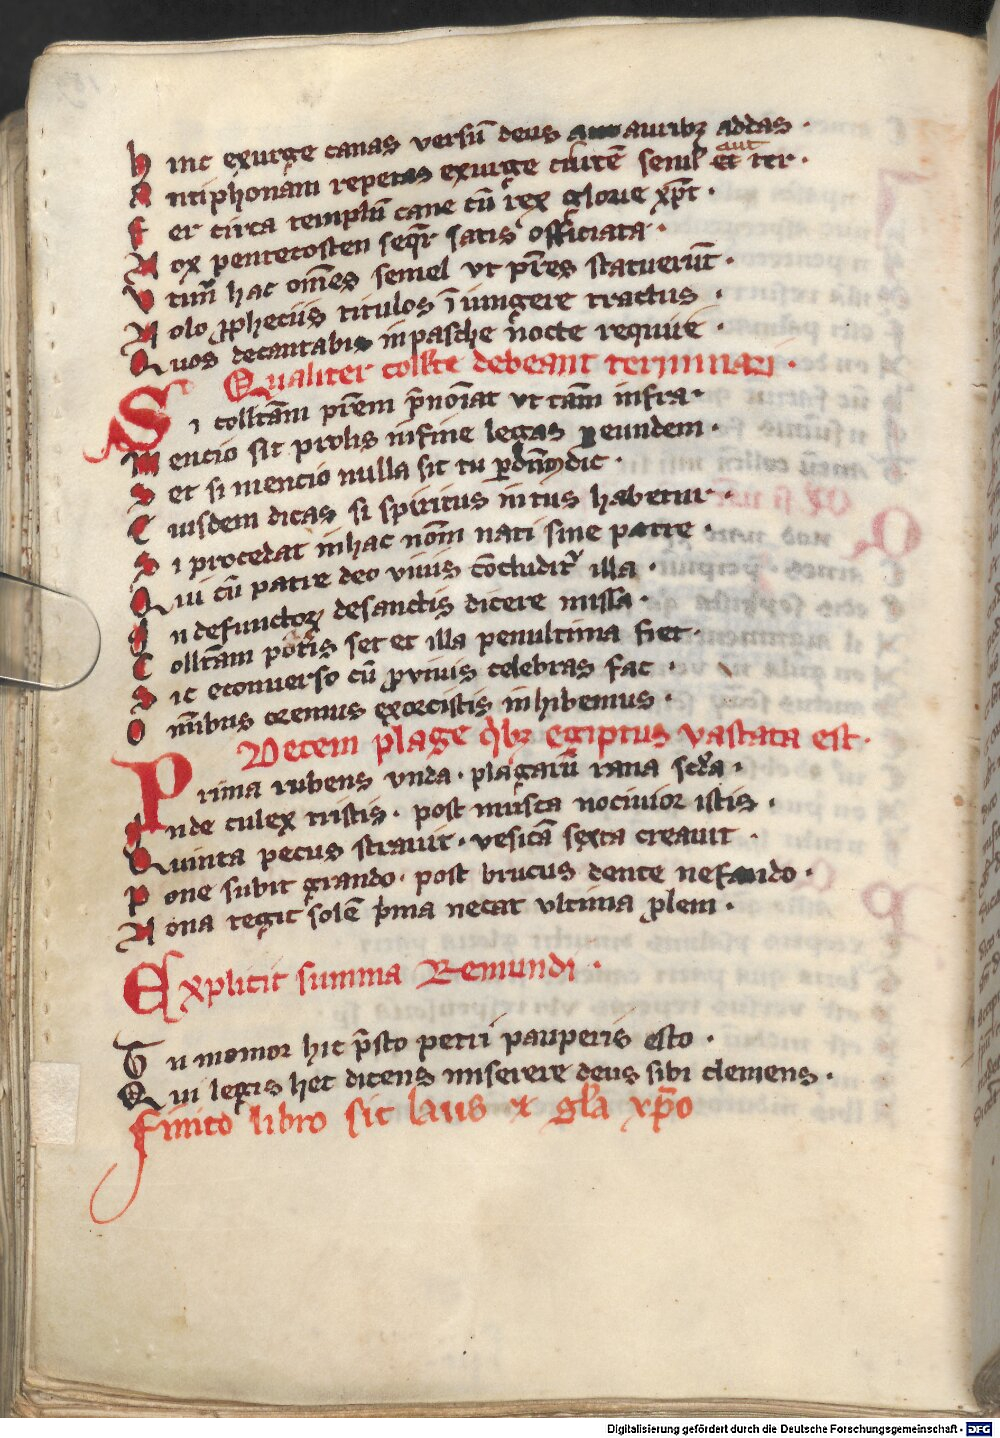 hinc exurge canas versū deus auribꝫ addas ·
Antiphonam repetas exurge ciurē seml et aut ter ·
fer circa templū cane cū rex glorie xp̄c ·
Nox pentecosten seqr̄ satis officiata ·
Vtim̄ hac om̄es semel vt pr̄es statuerūt ·
Nolo ꝓpheciis titulos īiungere tractus ·
Quos decantabis in pasche nocte requiue ·
Qualiter collc̄te debeant terminari ·
Si collcām pr̄em p̄nōiat vt tām infra ·
Mencio sit prolis in fine legas eundem ·
Set si mencio nulla sit tu ꝑ dn̄m dic ·
Eiusdem dicas si spiritus intus habetur ·
Si procedat in hac nōm nati sine patre ·
Qui cū patre deo viuis cōcludit᷑ illa ·
In defunctoꝝ de sanctis dicere missa ·
Collcām pot̄is set et illa penultima fiet ·
Sic econuerso cū ꝓ viuis celebras fac ·
Om̄ibus oremus exorcistis inhibemus ·
Decem plage qͥbꝫ egiptus vastata est ·
Prima rubens vnda · plagarū rana scd̄a ·
Inde culex tristis · post musca nociuior istis ·
Quinta pecus strauit · vesicā sexta creauit ·
Pone subit grando · post brucus dente nefando ·
Nona tegit solē p̄ma necat vltima ꝓlem ·
Explicit summa Remundi ·
Tu memor hic p̄sto petri pauperis esto ·
Qui legis hec dicens miserere deus sibi clemens ·
finito libro sit laus et gl̄a xp̄o
Digitalisierung gefördert durch die Deutsche Forschungsgemeinschaft - DFG